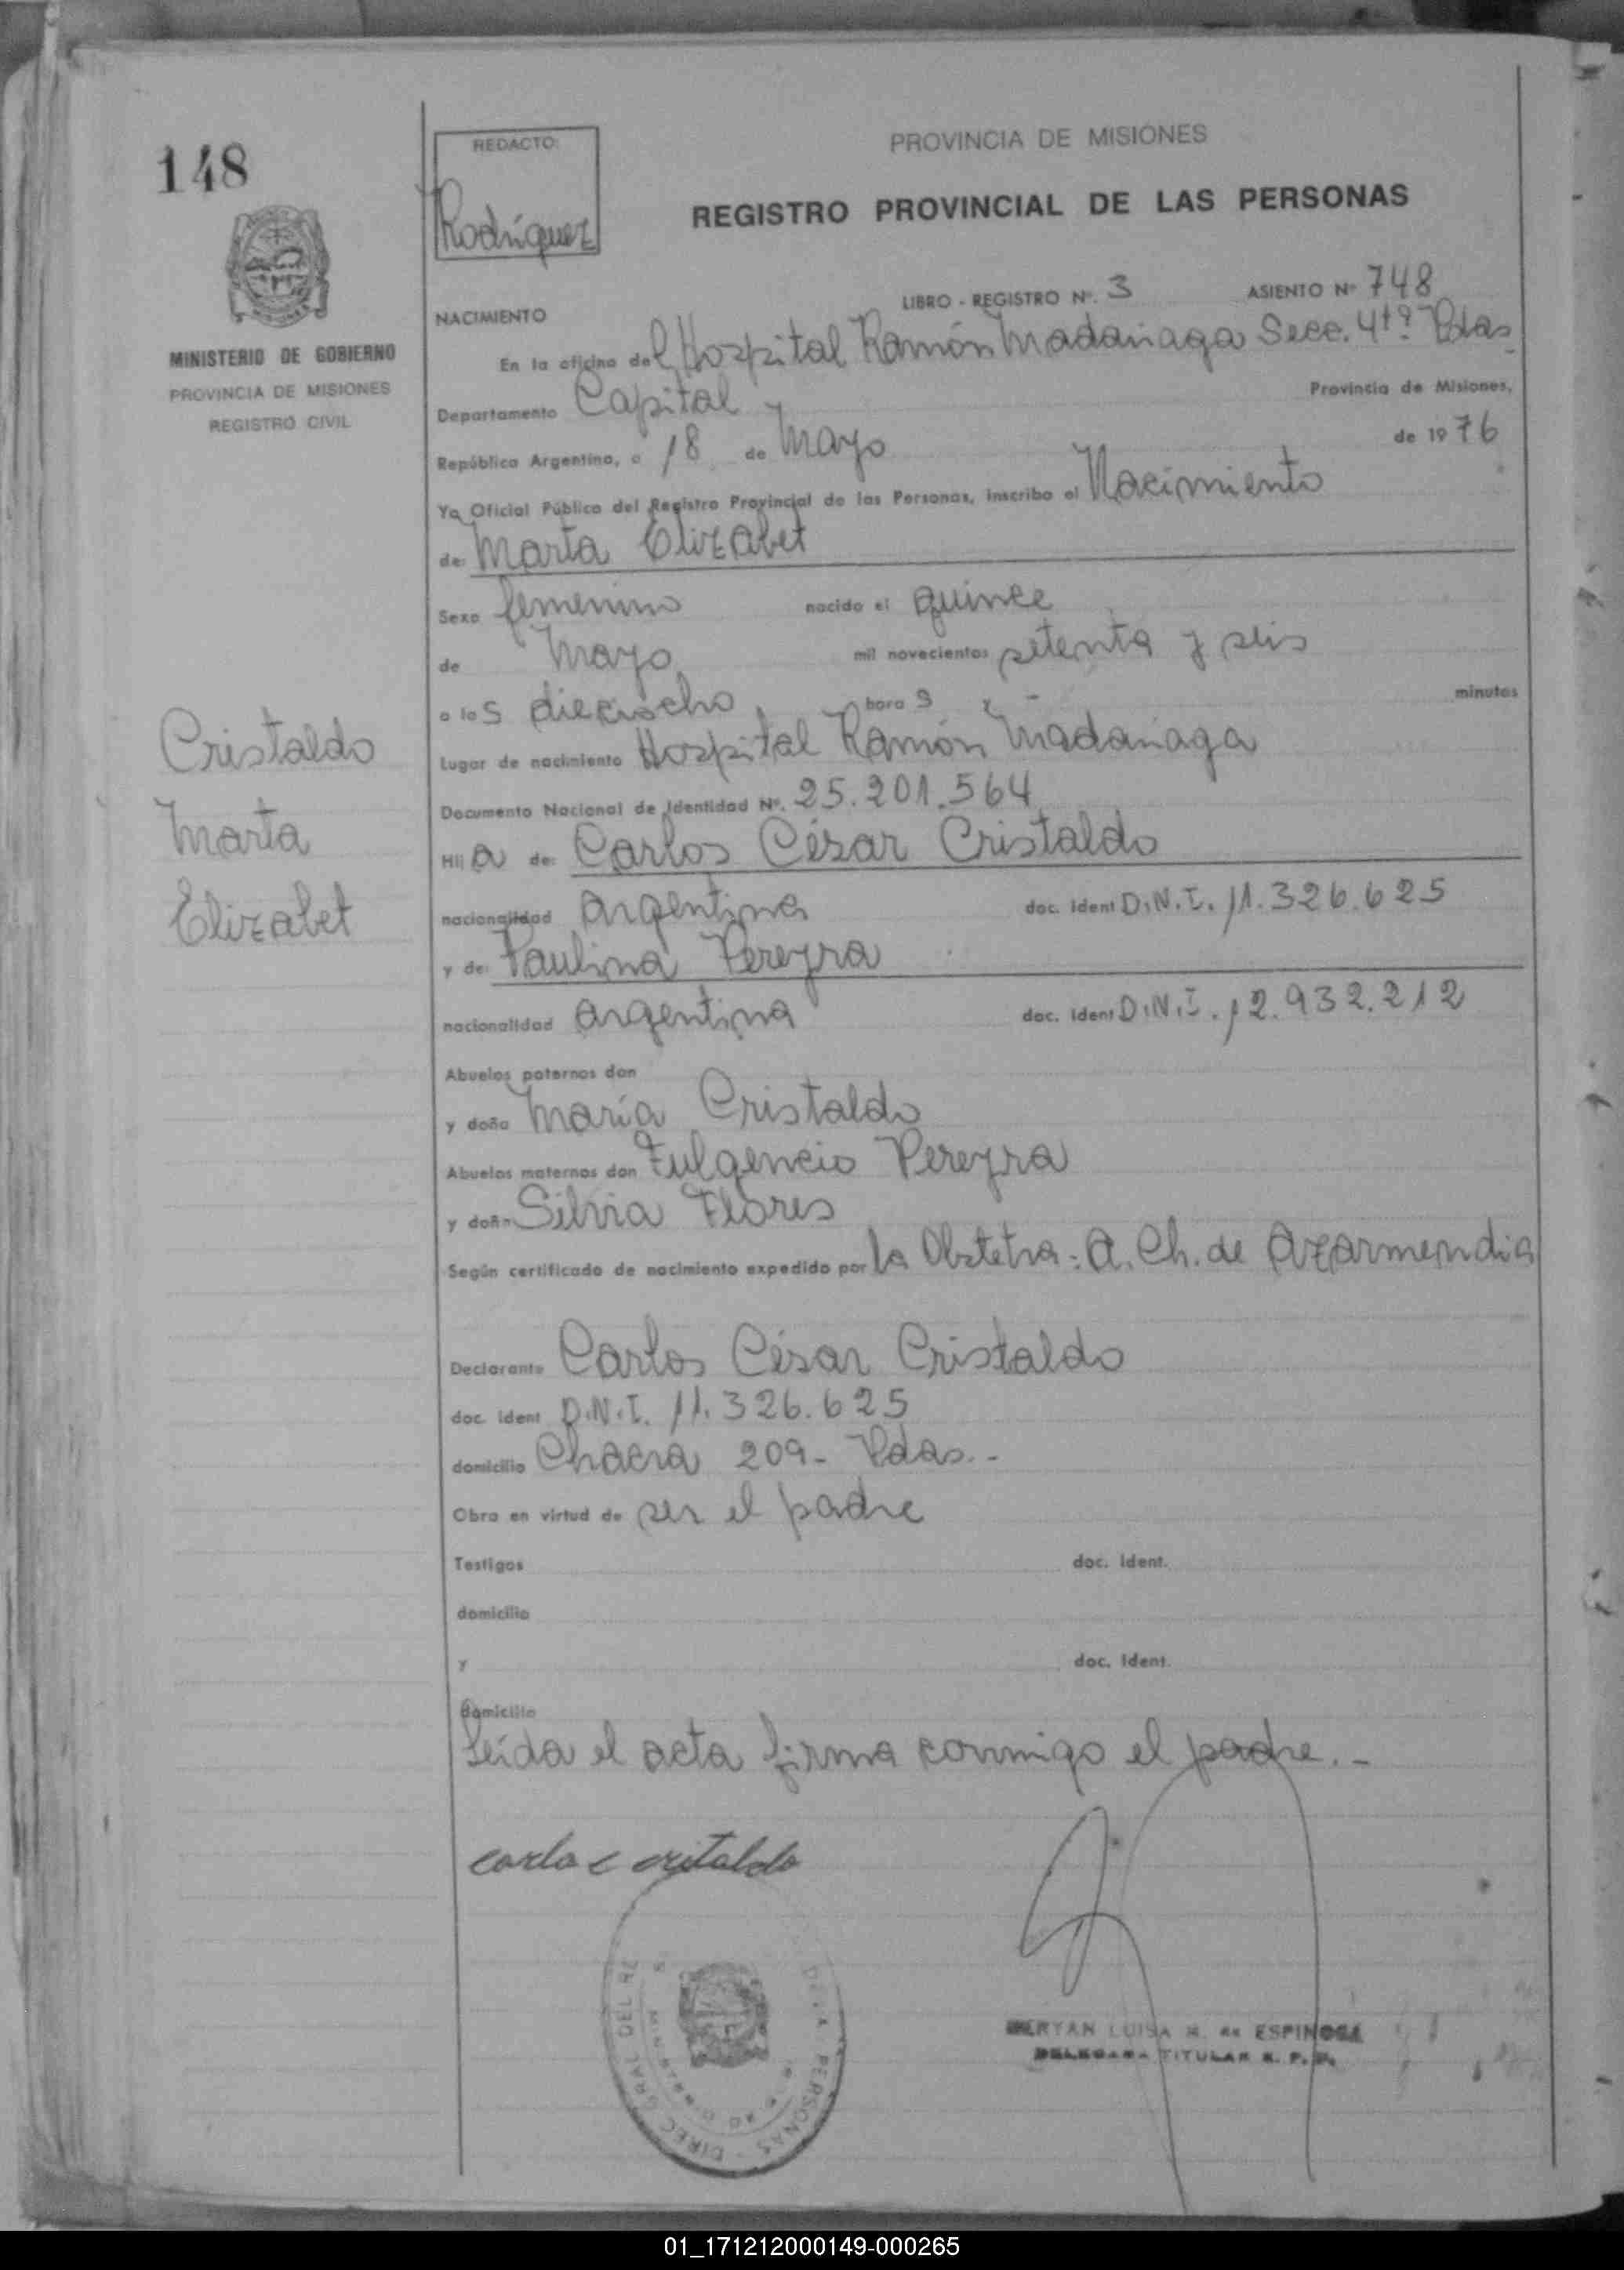 148
REDACTO:
Rodríguez
PROVINCIA DE MISIONES
REGISTRO PROVINCIAL DE LAS PERSONAS
MINISTERIO DE GOBIERNO
PROVINCIA DE MISIONES
REGISTRO CIVIL
LIBRO - REGISTRO Nº. 3 ASIENTO Nº 748
NACIMIENTO
En la oficina del Hospital Ramón Madariaga Secc. 4tº Pdas
Departamento Capital Provincia de Misiones,
República Argentina, a 18 de Mayo de 1976
Yo Oficial Público del Registro Provincial de las Personas, inscribo el Nacimiento
de: Marta Elizabet
Sexo femenino nacido el quince
de Mayo mil novecientos setenta y seis
a las dieciocho horas y - minutos
Lugar de nacimiento Hospital Ramón Madariaga
Documento Nacional de Identidad Nº. 25.201.564
Hija de: Carlos César Cristaldo
nacionalidad argentina doc. ident D.N.I. 11.326.625
y de: Paulina Pereyra
nacionalidad argentina doc. ident D.N.I. 12.932.212
Abuelos paternos don
y doña María Cristaldo
Abuelos maternos don Fulgencio Pereyra
y doña Silvia Flores
Según certificado de nacimiento expedido por la Obstetra: A. Ch. de Azarmendia
Declarante Carlos César Cristaldo
doc. ident D.N.I. 11.326.625
domicilio Chacra 209- Pdas.-
Obra en virtud de ser el padre
Testigos doc. ident.
domicilio
y doc. ident.
domicilio
Leída el acta firma conmigo el padre.-
Cristaldo
Marta
Elizabet
carlo c critaldo
LUISA de ESPINOSA
TITULAR
DIREC GRAL DEL PERSONAS
01_171212000149-000265